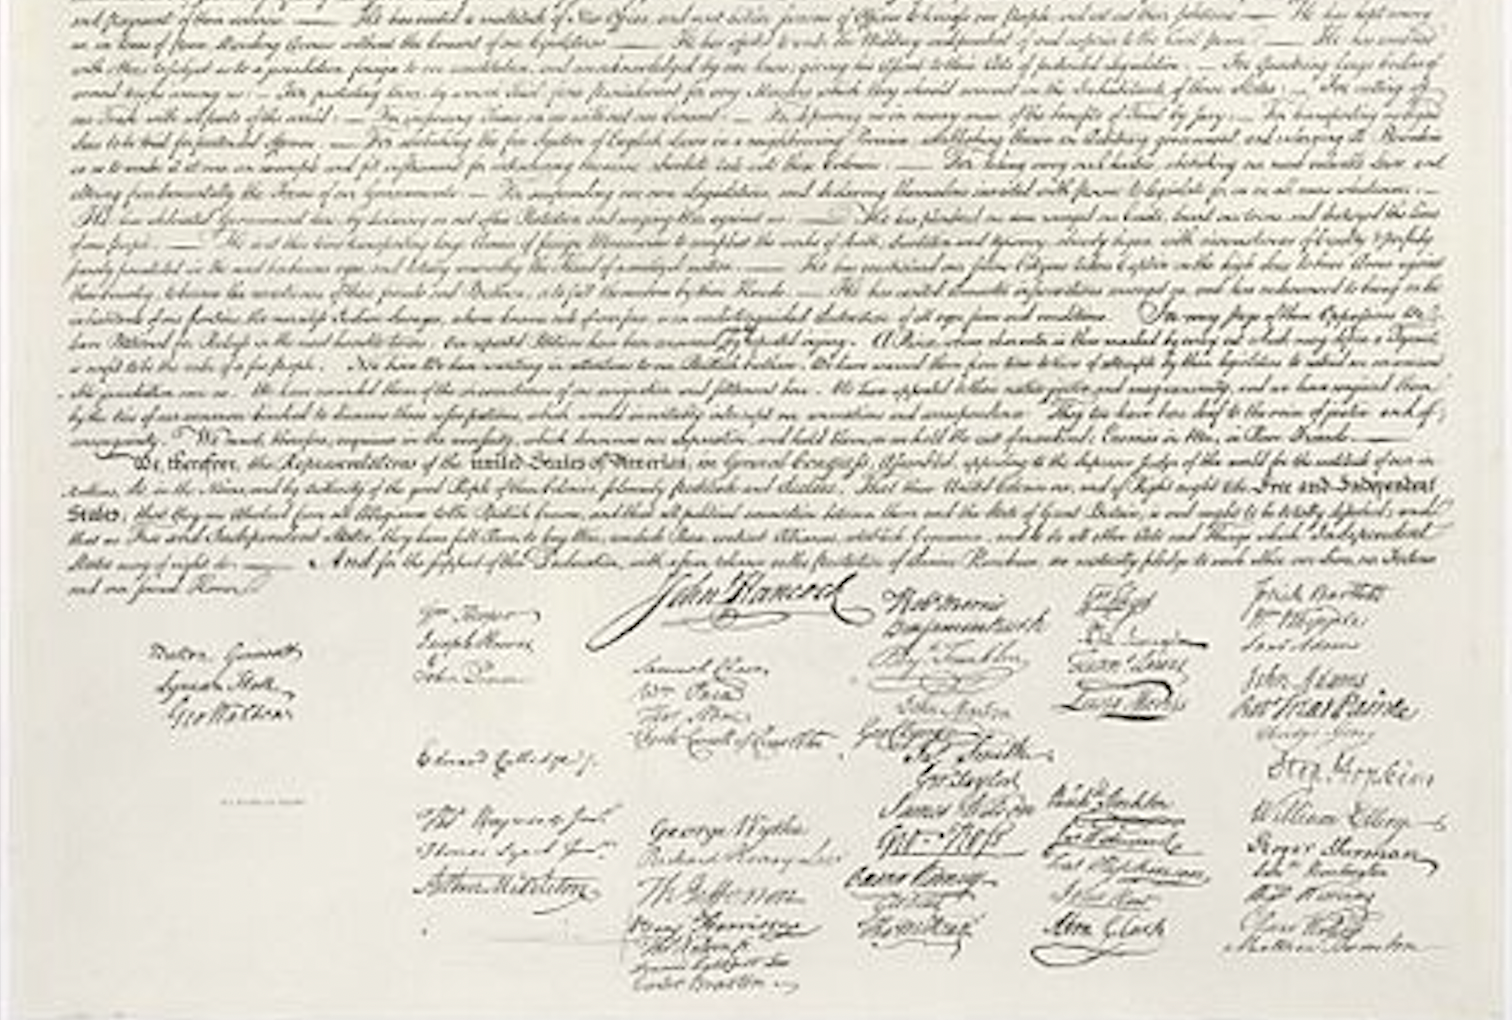 and fragment of their existence. — He has erected a multitude of New Offices, and sent hither swarms of Officers to harrass our People, and eat out their substance. — He has kept among
us, in times of peace, Standing Armies without the Consent of our legislatures. — He has affected to render the Military independent of and superior to the Civil power. — He has combined
with others to subject us to a jurisdiction foreign to our constitution, and unacknowledged by our laws; giving his Assent to their Acts of pretended Legislation: — For Quartering large bodies of
armed troops among us: — For protecting them, by a mock Trial, from punishment for any Murders which they should commit on the Inhabitants of these States: — For cutting off
our Trade with all parts of the world: — For imposing Taxes on us without our Consent: — For depriving us in many cases, of the benefits of Trial by Jury: — For transporting us beyond
Seas to be tried for pretended offences — For abolishing the free System of English Laws in a neighbouring Province, establishing therein an Arbitrary government, and enlarging its Boundaries
so as to render it at once an example and fit instrument for introducing the same absolute rule into these Colonies: — For taking away our Charters, abolishing our most valuable Laws, and
altering fundamentally the Forms of our Governments: — For suspending our own Legislatures, and declaring themselves invested with power to legislate for us in all cases whatsoever. —
He has abdicated Government here, by declaring us out of his Protection and waging War against us. — He has plundered our seas, ravaged our Coasts, burnt our towns, and destroyed the lives
of our people. — He is at this time transporting large Armies of foreign Mercenaries to compleat the works of death, desolation and tyranny, already begun with circumstances of Cruelty & perfidy
scarcely paralleled in the most barbarous ages, and totally unworthy the Head of a civilized nation. — He has constrained our fellow Citizens taken Captive on the high Seas to bear Arms against
their Country, to become the executioners of their friends and Brethren, or to fall themselves by their Hands. — He has excited domestic insurrections amongst us, and has endeavoured to bring on the
inhabitants of our frontiers, the merciless Indian Savages, whose known rule of warfare, is an undistinguished destruction of all ages, sexes and conditions. In every stage of these Oppressions We
have Petitioned for Redress in the most humble terms: Our repeated Petitions have been answered only by repeated injury. A Prince, whose character is thus marked by every act which may define a Tyrant,
is unfit to be the ruler of a free people. Nor have We been wanting in attentions to our Brittish brethren. We have warned them from time to time of attempts by their legislature to extend an unwarrantable
jurisdiction over us. We have reminded them of the circumstances of our emigration and settlement here. We have appealed to their native justice and magnanimity, and we have conjured them
by the ties of our common kindred to disavow these usurpations, which, would inevitably interrupt our connections and correspondence. They too have been deaf to the voice of justice and of
consanguinity. We must, therefore, acquiesce in the necessity, which denounces our Separation, and hold them, as we hold the rest of mankind, Enemies in War, in Peace Friends. —
We, therefore, the Representatives of the united States of America, in General Congress, Assembled, appealing to the Supreme Judge of the world for the rectitude of our in
tentions, do, in the Name, and by Authority of the good People of these Colonies, solemnly publish and declare, That these United Colonies are, and of Right ought to be Free and Independent
States; that they are Absolved from all Allegiance to the British Crown, and that all political connection between them and the State of Great Britain, is and ought to be totally dissolved; and
that as Free and Independent States, they have full Power to levy War, conclude Peace, contract Alliances, establish Commerce, and to do all other Acts and Things which Independent
States may of right do. — And for the support of this Declaration, with a firm reliance on the protection of divine Providence, we mutually pledge to each other our Lives, our Fortunes
and our sacred Honor.
John Hancock
Button Gwinnett
Lyman Hall
Geo Walton
Wm Hooper
Joseph Hewes
John Penn
Edward Rutledge
Thos Heyward Junr
Thomas Lynch Junr
Arthur Middleton
Samuel Chase
Wm Paca
Thos Stone
Charles Carroll of Carrollton
George Wythe
Richard Henry Lee
Th Jefferson
Benj Harrison
Thos Nelson jr
Francis Lightfoot Lee
Carter Braxton
Robt Morris
Benjamin Rush
Benj Franklin
John Morton
Geo Clymer
Jas Smith
Geo Taylor
James Wilson
Geo Ross
Caesar Rodney
Geo Read
Tho M:Kean
Wm Floyd
Phil Livingston
Frans Lewis
Lewis Morris
Richd Stockton
Jno Witherspoon
Fras Hopkinson
John Hart
Abra Clark
Josiah Bartlett
Wm Whipple
Saml Adams
John Adams
Robt Treat Paine
Elbridge Gerry
Step Hopkins
William Ellery
Roger Sherman
Saml Huntington
Wm Williams
Oliver Wolcott
Matthew Thornton